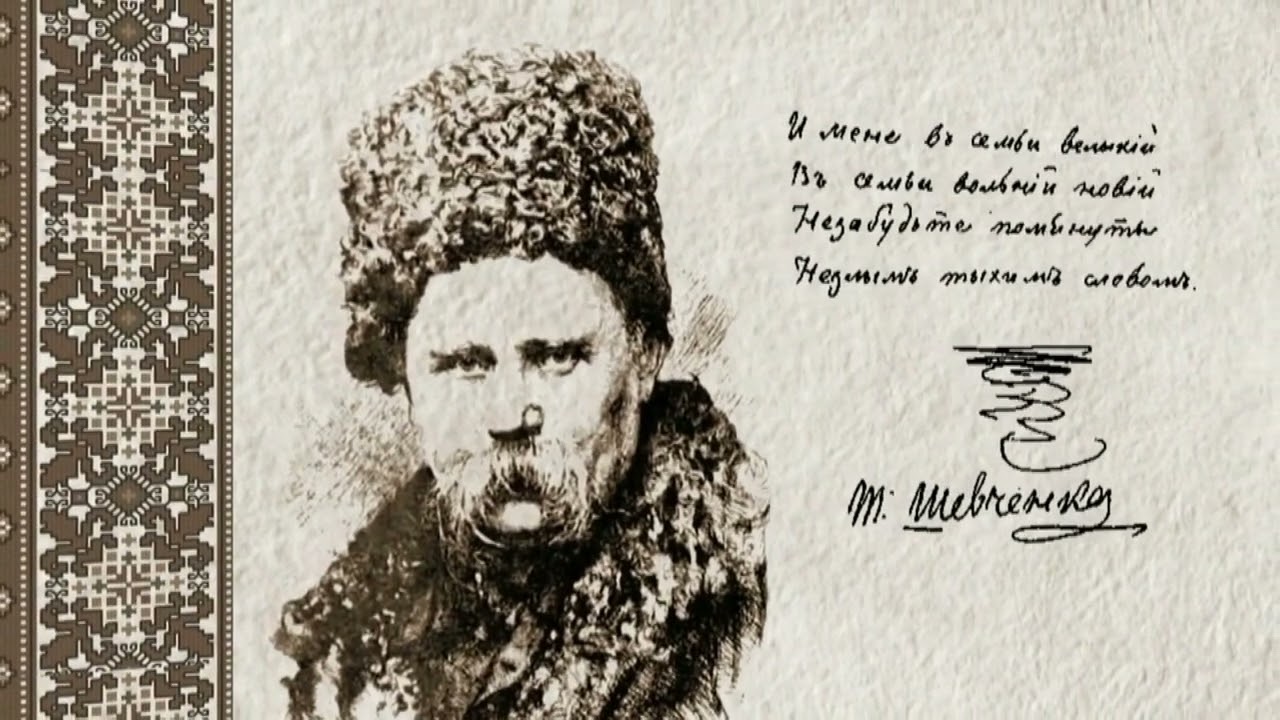 И мене въ семьи велыкій
Въ семьи вольній новій
Незабудьте помянуты
Незлымъ тыхимъ словомъ.
Т: Шевченко